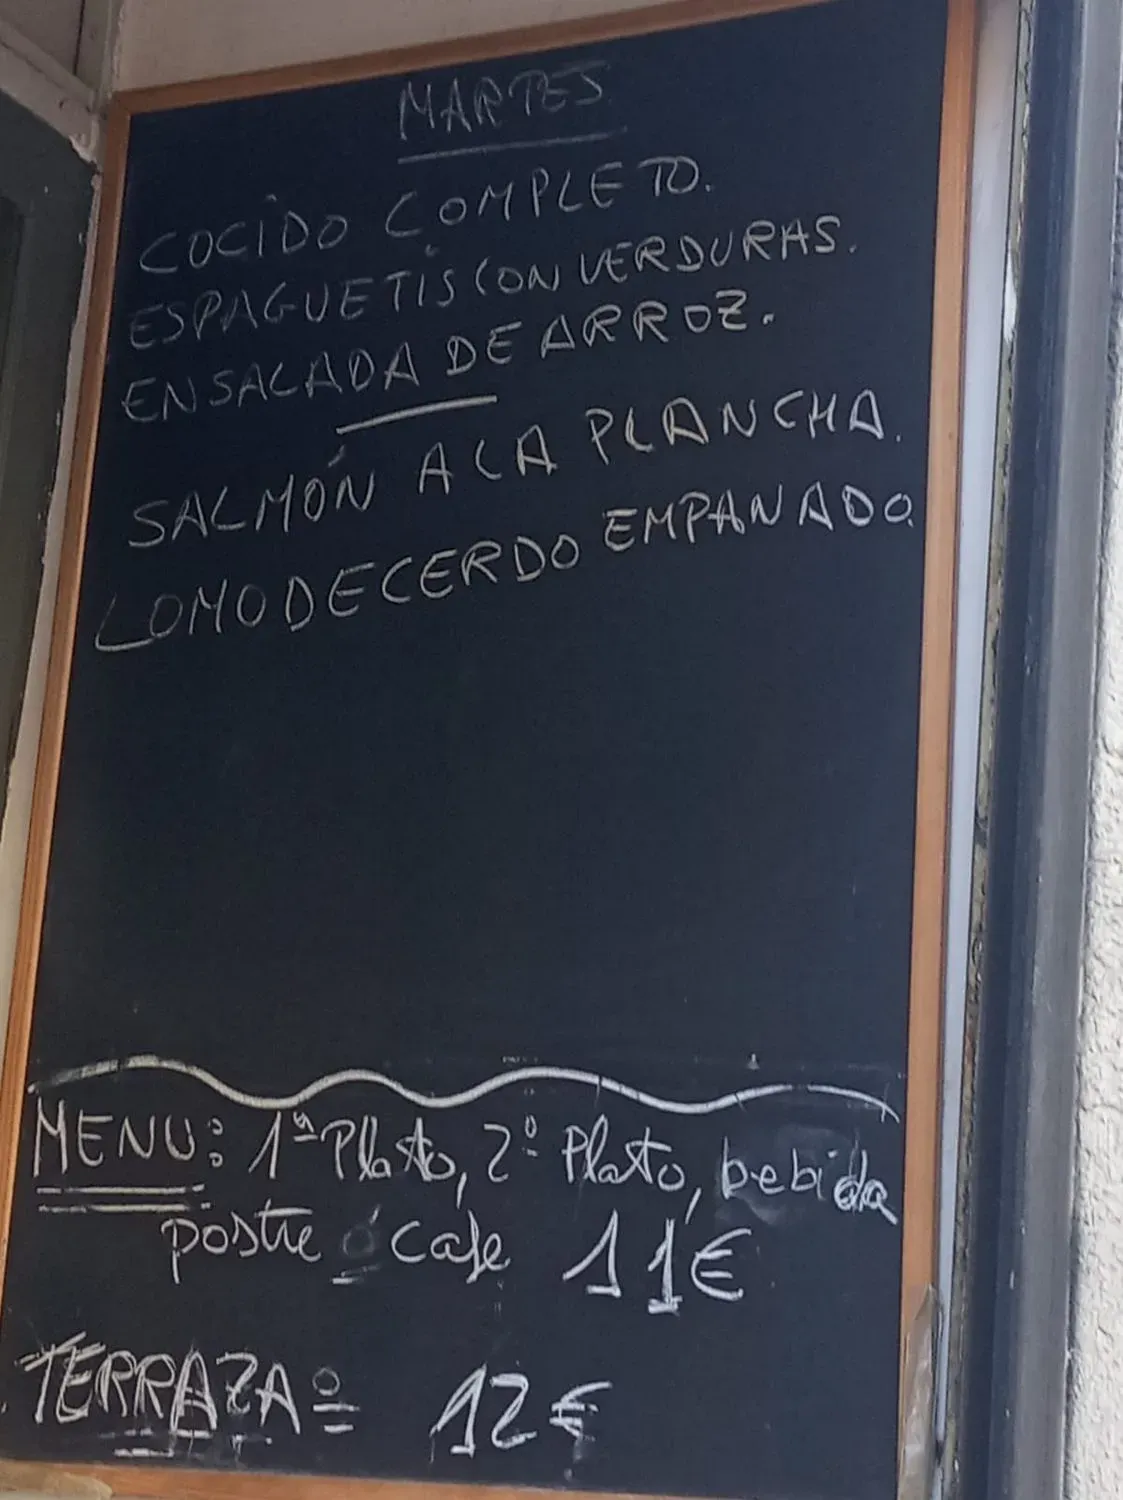 MARTES
COCIDO COMPLETO.
ESPAGUETIS CON VERDURAS.
ENSALADA DE ARROZ.
SALMÓN A LA PLANCHA.
LOMO DE CERDO EMPANADO.
MENU: 1ª Plato, 2º Plato, bebida
postre ó cafe 11€
TERRAZA: 12€